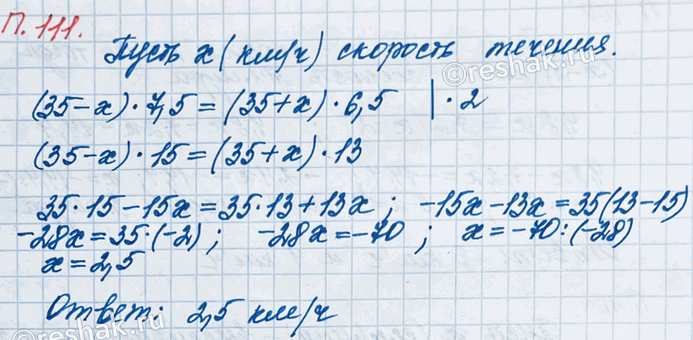 П. 111.
Пусть x (км/ч) скорость течения.
(35-x)·7,5=(35+x)·6,5 |·2
(35-x)·15=(35+x)·13
35·15-15x=35·13+13x; -15x-13x=35(13-15)
-28x=35·(-2); -28x=-70; x=-70:(-28)
x=2,5
Ответ: 2,5 км/ч
©reshak.ru
©reshak.ru